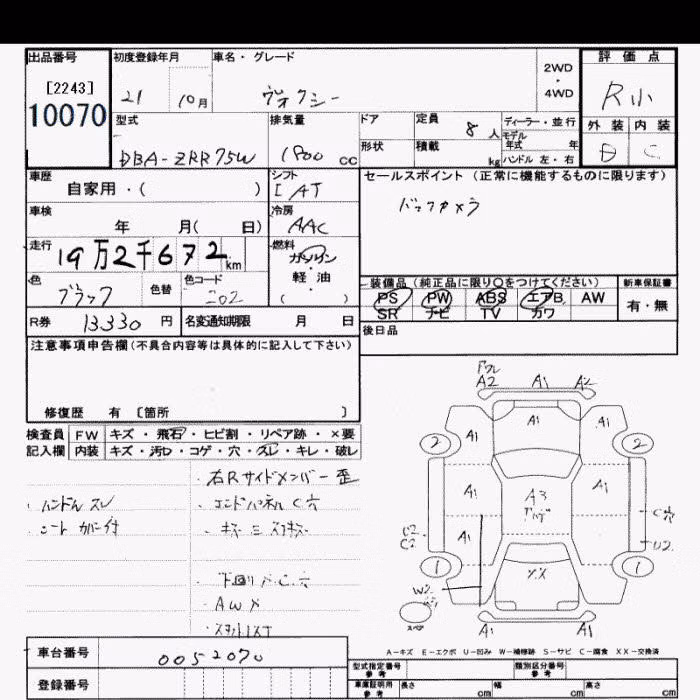 出品番号 初度登録年月 車名・グレード 2WD ・ 4WD 評価点
[2243]
10070
21 10月 ヴォクシー R小
型式 排気量 ドア 定員 8人 ディーラー・並行 外装 内装
DBA-ZRR75W 1800 cc 形状 積載 kg モデル年式 年 ハンドル 左・右 B C
車歴 シフト セールスポイント (正常に機能するものに限ります)
自家用・( ) I AT バックカメラ
車検 冷房
年 月( 日) AAC
走行 燃料
19万2千672km ガソリン・軽油
( )
色 色替 色コード 装備品(純正品に限り○をつけてください) 新車保証書
ブラック 202 PS PW ABS エアB AW 有・無
SR ナビ TV カワ
R券 13330円 名変通知期限 月 日 後日品
注意事項申告欄(不具合内容等は具体的に記入して下さい)
修復歴 有 〔箇所 〕
検査員 FW キズ・飛石・ヒビ割・リペア跡・×要
記入欄 内装 キズ・汚れ・コゲ・穴・スレ・キレ・破レ
・右Rサイドメンバー歪
・ハンドルスレ ・エンドパネルC穴
・シートカバー付
・下回りC穴
・AWX
A2 A1 A2
A1 A1 A1
2 2
A1 A3 A1
A1
C2 C穴
C2 U2
1 1
W2 XX
スペア
A1 A1
車台番号 0052070
A-キズ E-エクボ U-凹み W-補修跡 S-サビ C-腐食 XX-交換済
登録番号
型式指定番号 参考 類別区分番号 参考
車庫証明用 参考 長さ cm 幅 cm 高さ cm